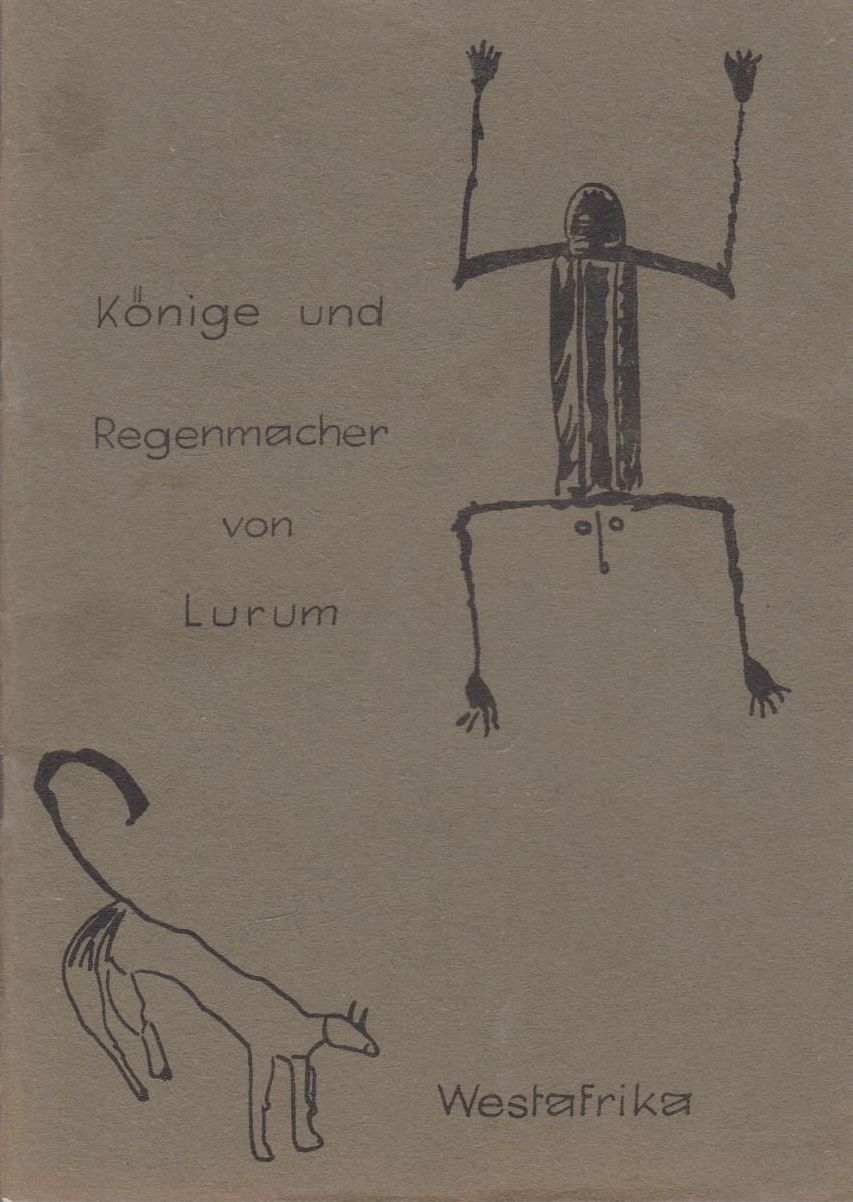 Könige und
Regenmacher
von
Lurum
Westafrika